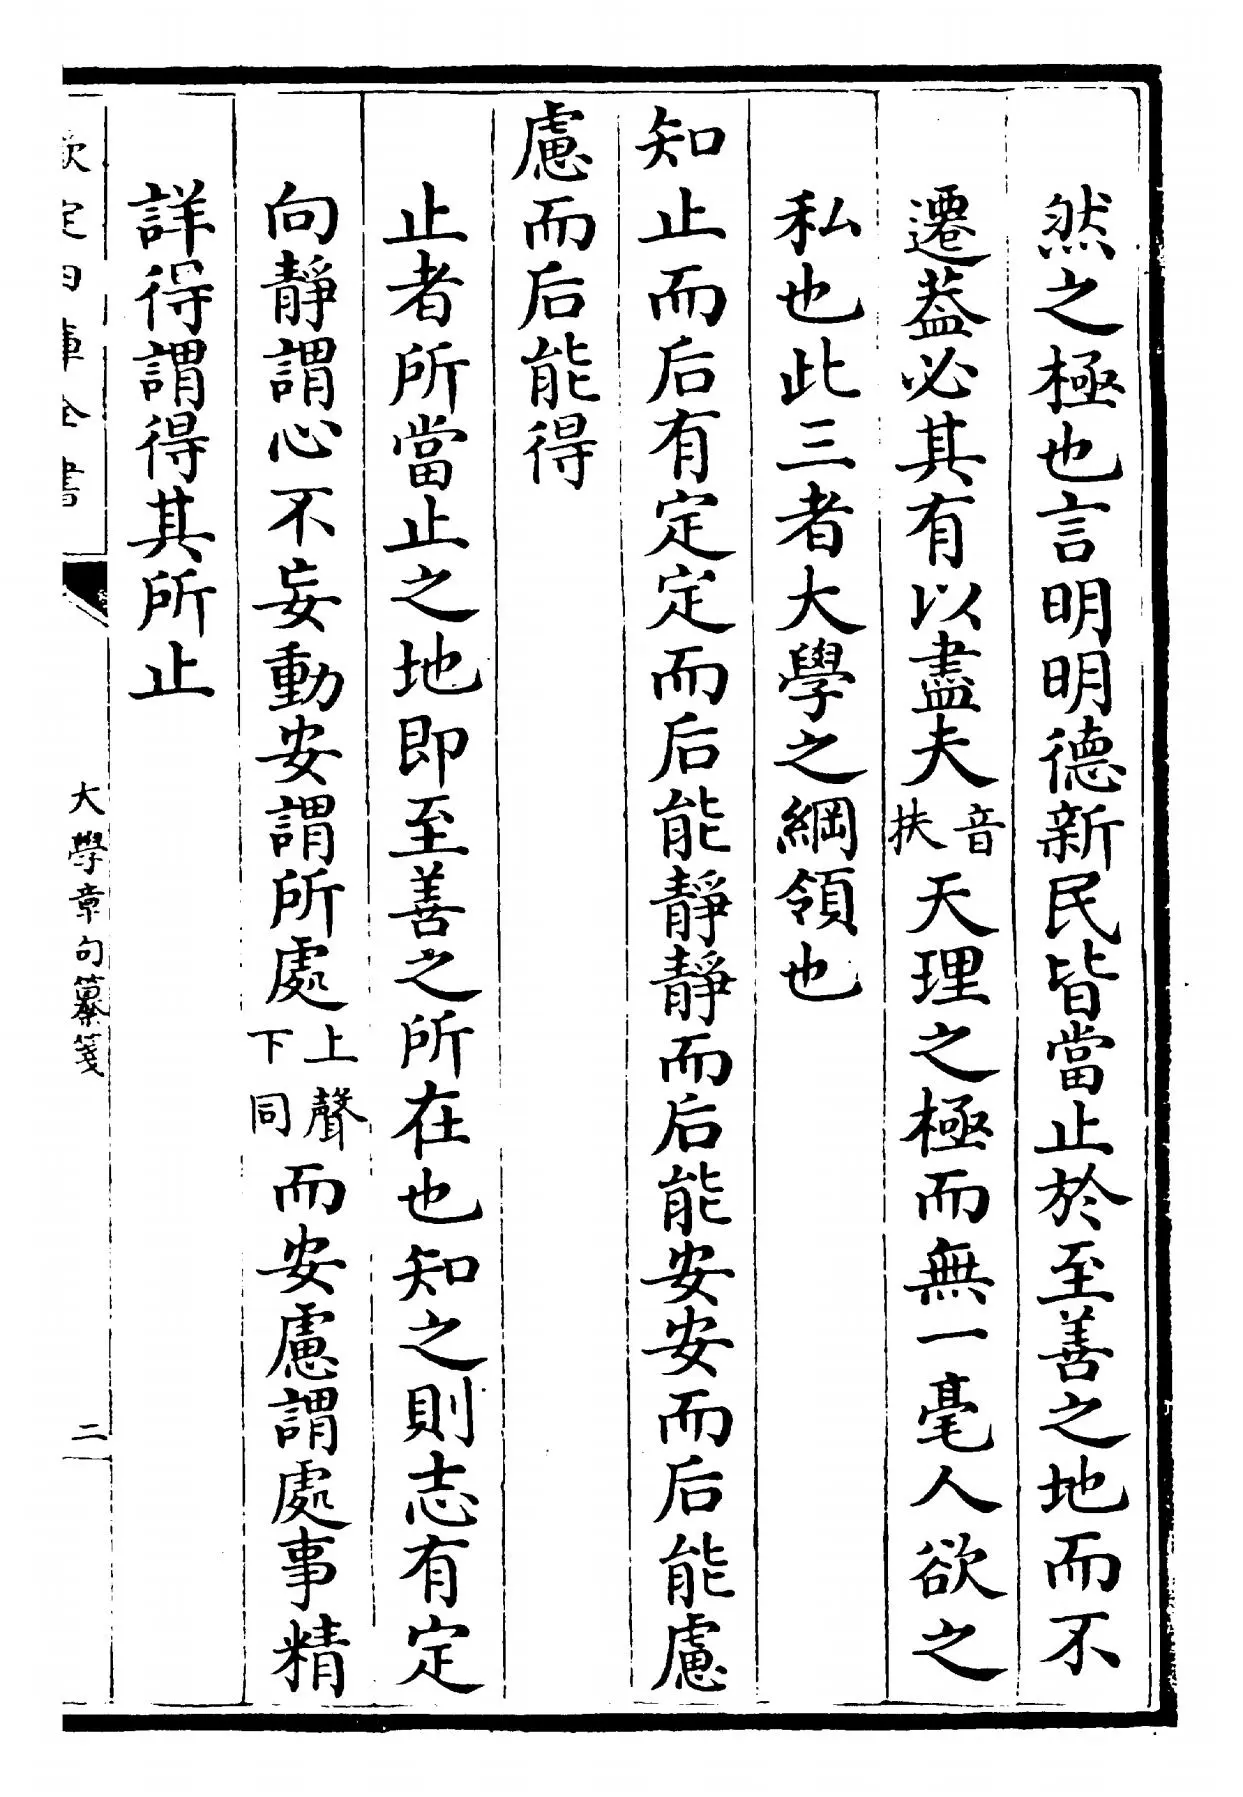 然之極也言明明德新民皆當止於至善之地而不
遷葢必其有以盡夫音扶天理之極而無一毫人欲之
私也此三者大學之綱領也
知止而后有定定而后能靜靜而后能安安而后能慮
慮而后能得
止者所當止之地即至善之所在也知之則志有定
向靜謂心不妄動安謂所處上聲下同而安慮謂處事精
詳得謂得其所止
欽定四庫全書
大學章句纂箋
二